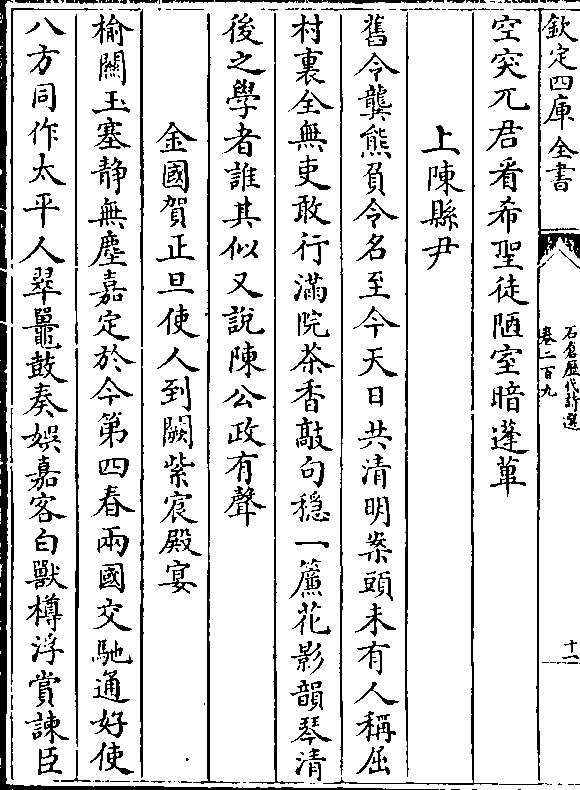 欽定四庫全書
石倉歷代詩選
卷二百九
十一
空突兀君看希聖徒陋室暗蓬蓽
上陳縣尹
舊令龔熊負令名至今天日共清明案頭未有人稱屈
村裏全無吏敢行滿院茶香敲句穩一簾花影韻琴清
後之學者誰其似又說陳公政有聲
金國賀正旦使人到闕紫宸殿宴
榆關玉塞静無塵嘉定於今第四春兩國交馳通好使
八方同作太平人翠鼉鼓奏娯嘉客白獸樽浮賞諫臣